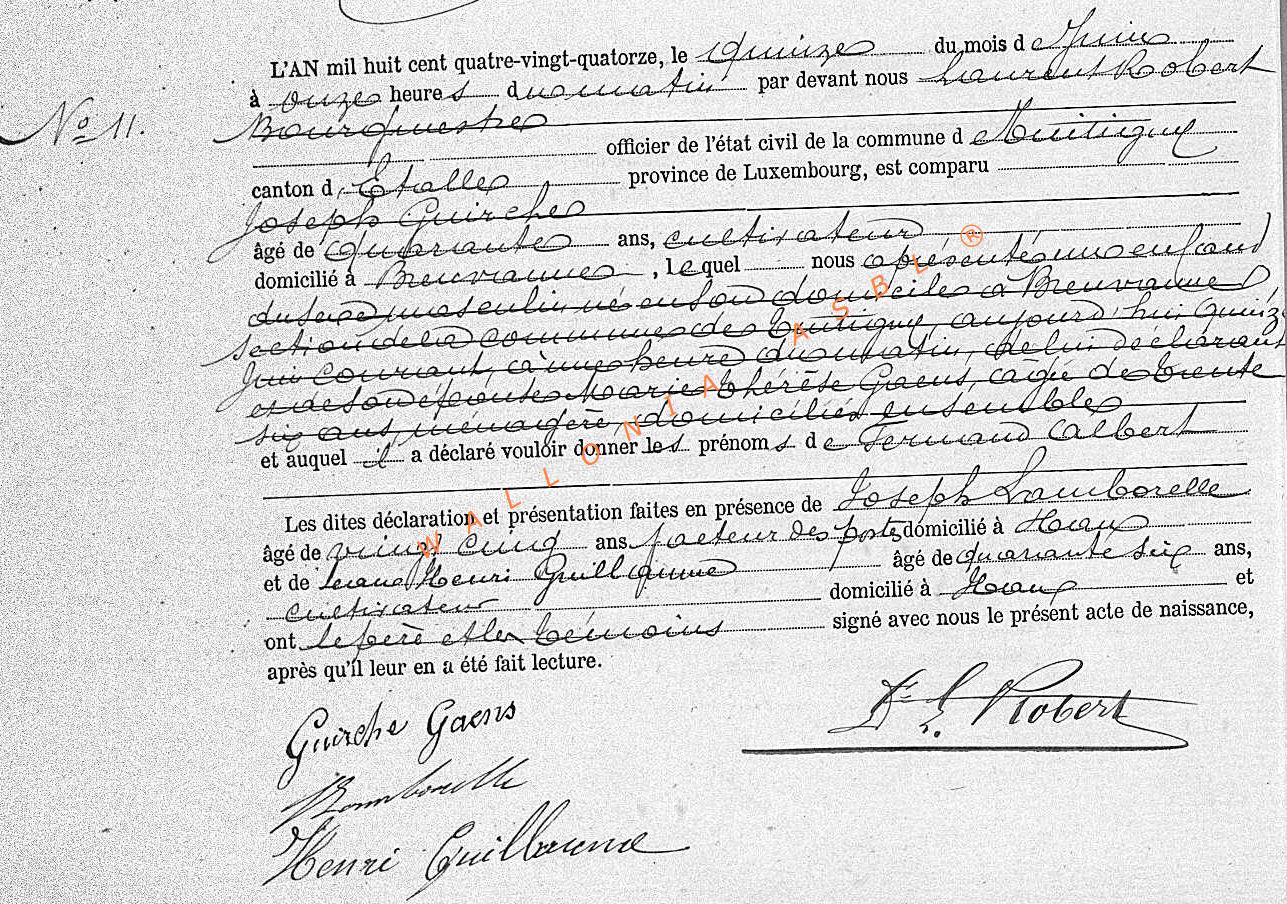 L'AN mil huit cent quatre-vingt-quatorze, le Quinze du mois de Juin
à onze heures du matin par devant nous Laurent Robert
No 11.
Bourgmestre
officier de l'état civil de la commune d
canton d'Etalle province de Luxembourg, est comparu
Joseph Guirche
âgé de quarante ans, cultivateur
domicilié à Breuvanne, lequel nous a présenté un enfant
du sexe masculin né en son domicile à Breuvanne
section de la commune de aujourd'hui quinze
Juin courant, à une heure du matin, de lui déclarant
et de son épouse Marie Thérèse Gaens, âgée de trente
six ans, ménagère, domiciliés ensemble
et auquel il a déclaré vouloir donner les prénoms de Fernand Albert
Les dites déclaration et présentation faites en présence de Joseph Lamborelle
âgé de vingt cinq ans, facteur des postes domicilié à
et de Henri Guillaume âgé de quarante six ans,
cultivateur domicilié à et
ont le père et les témoins signé avec nous le présent acte de naissance,
après qu'il leur en a été fait lecture.
Guirche Gaens
Dr L. Robert
Lamborelle
Henri Guillaume
WALLONIA ASBL ®